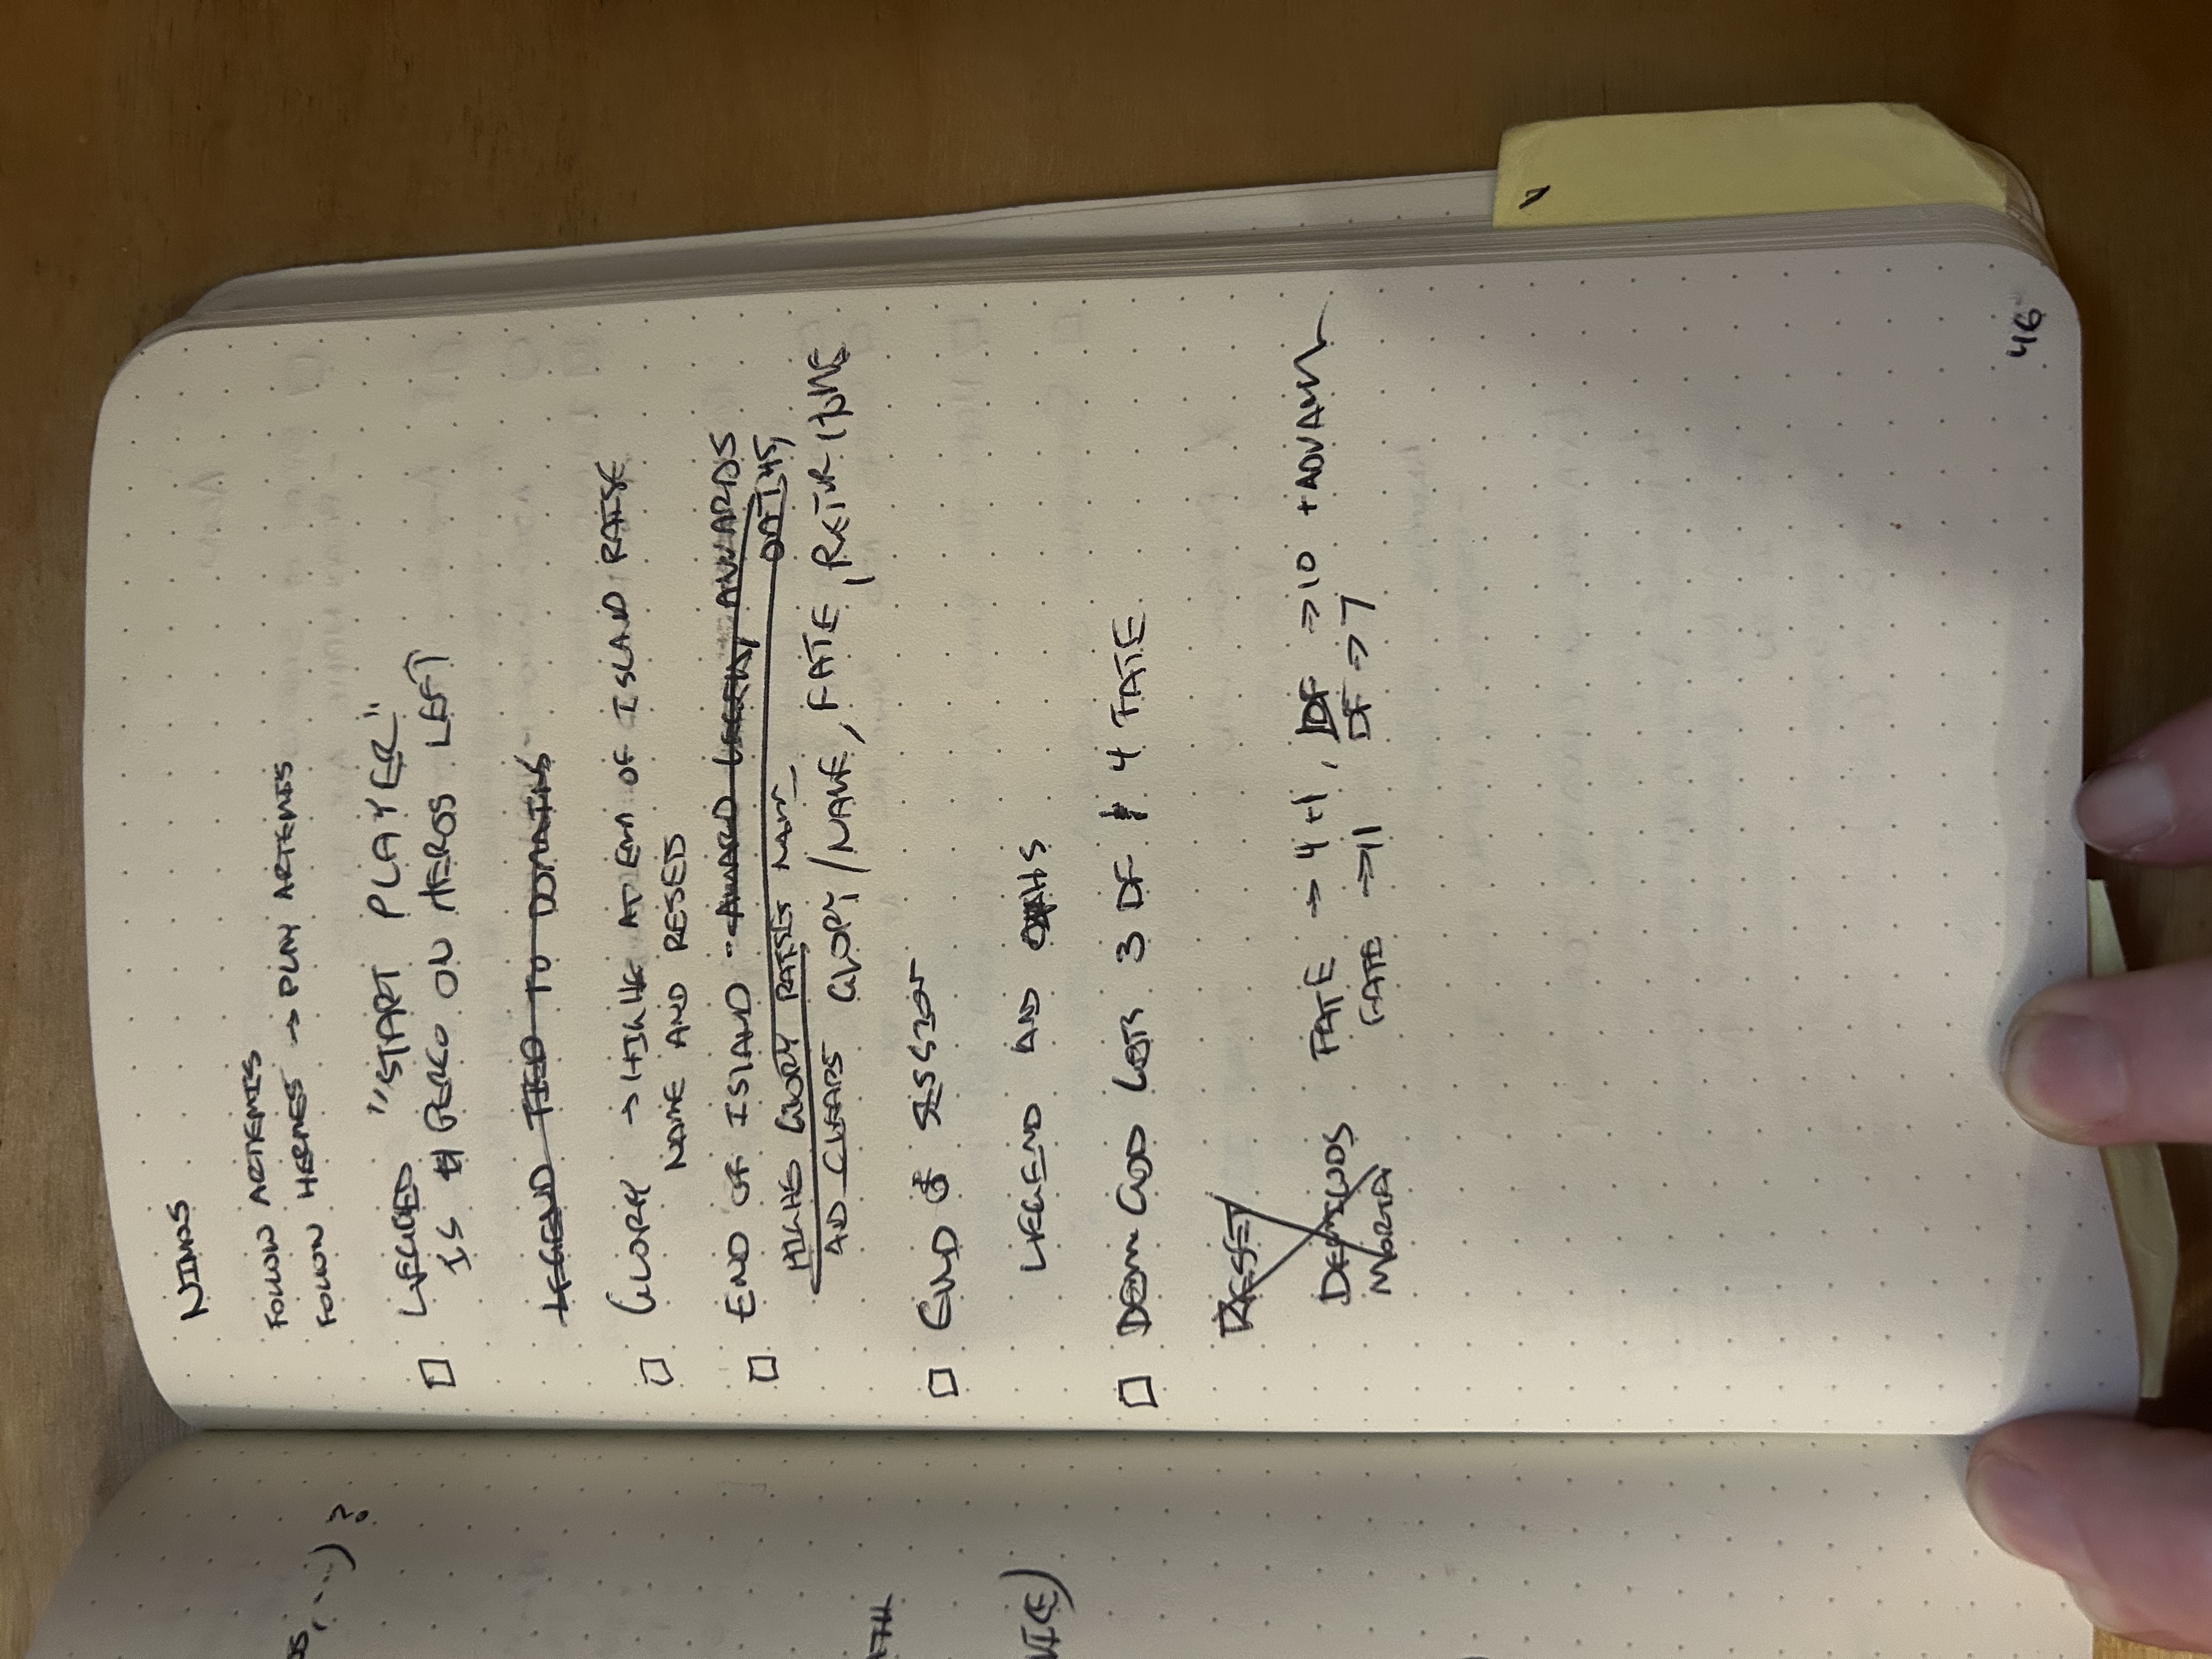 NIMOS
FOLLOW ARTEMIS
FOLLOW HERMES → PLAY ARTEMIS
"START PLAYER"
IS # ON HEROS LEFT
LEGEND TIED TO DOMAINS
GLORY → HIGHE AT END OF ISLAND RAISE
NAME AND RESETS
END OF ISLAND · AWARD AWARDS
HIGHE GLORY RAISES NAME OATHS,
AND CLEARS GLORY/NAME, FATE, RETUR HOME
END OF SESSION
LEGEND AND OATHS
DEMI GOD GETS 3 DF 4 FATE
RESET
DEMIGODS FATE → 4+1, DF → 10 + ADVAN
MORTAL FATE → 11 DF → 7
46